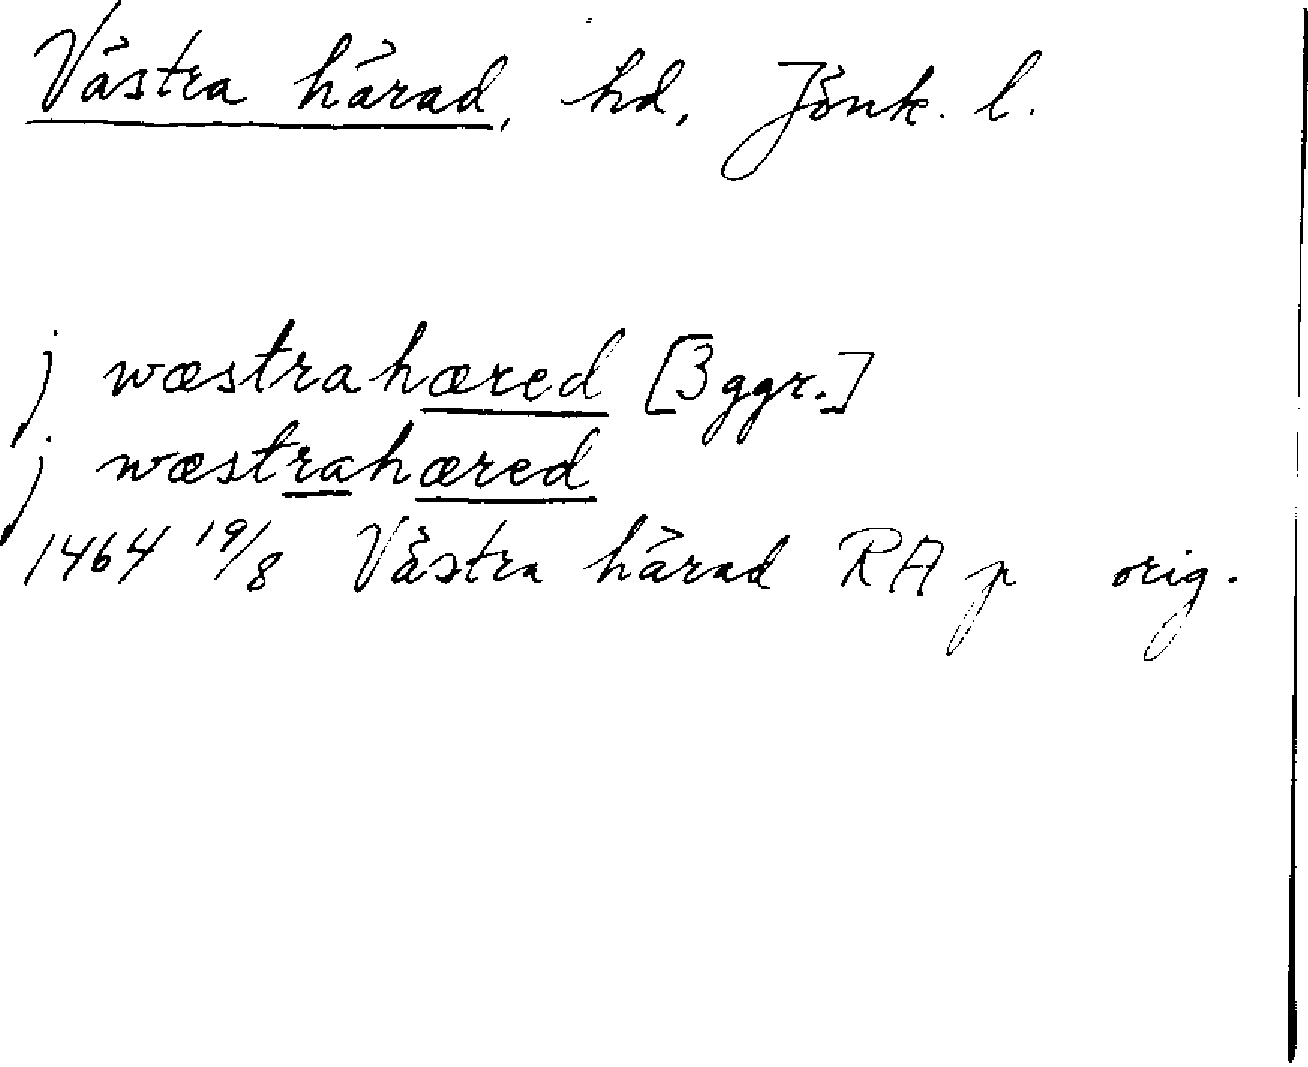 Västra härad, hd, Jönk. l.
j wæstrahæred [3 ggr.]
j wæstrahæred
1464 19/8 Västra härad RA p orig.